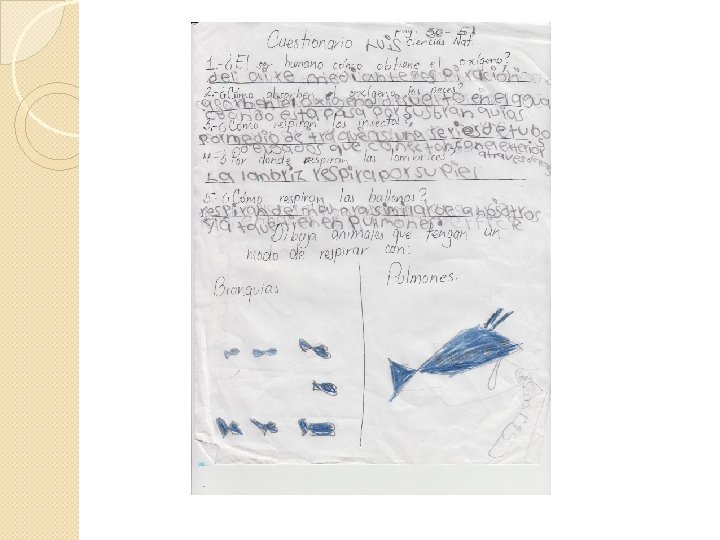 pag. 50 - 51
Cuestionario LUIS Ciencias Nat.
1.- ¿El ser humano cómo obtiene el oxígeno?
del aire mediante
2.- ¿Cómo absorben el oxígeno los peces?
absorben el oxigeno disuelto en el agua
cuando esta pasa por sus branquias
3.- ¿Cómo respiran los insectos?
por medio de traqueas una series de tubo
que conectan con el exterior
4.- ¿Por donde respiran las lombrices? atraves de
La lombriz respira por su piel
5.- ¿Cómo respiran las ballenas?
respiran de manera similar de a nosotros
ya que tienen pulmones
Dibuja animales que tengan un
modo de respirar con:
Branquias
Pulmones.